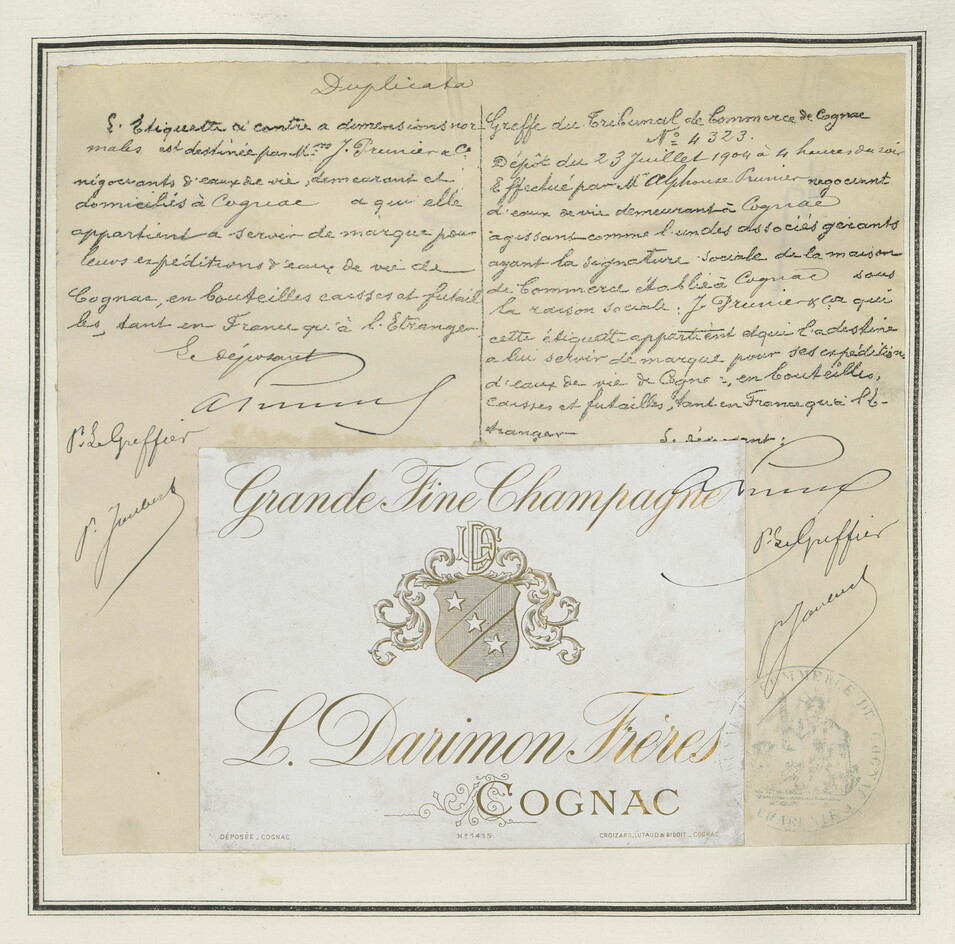 Duplicata
L'Etiquette ci contre a dimensions nor-
males est destinée par M.rs J. Prunier & Ce
négociants d'eaux de vie, demeurant et
domiciliés à Cognac a qui elle
appartient a servir de marque pour
leurs expéditions d'eaux de vie de
Cognac, en bouteilles caisses et futail
les, tant en France qu'à l'Etranger
Le déposant
P. Le Greffier
P. Joubert
Greffe du Tribunal de Commerce de Cognac
No 4323.
Dépôt du 23 Juillet 1904 à 4 heures du soir
Effectué par Mr Alphonse Prunier négociant
d'eaux de vie demeurant à Cognac
agissant comme l'un des associés gérants
ayant la signature sociale de la maison
de Commerce établie à Cognac sous
la raison sociale: J. Prunier & Ca qui
cette étiquette appartient et qui l'a destine
a lui servir de marque pour ses expéditions
d'eaux de vie de Cognac, en bouteilles,
caisses et futailles, tant en France qu'à l'E-
tranger
Le déposant:
P. Le Greffier
Joubert
Grande Fine Champagne
L. Darimon Frères
COGNAC
DÉPOSÉE _ COGNAC
No 1415
CROIZARD, LUTAUD & BIDOIT _ COGNAC
COMMERCE DE COGNAC
CHARENTE